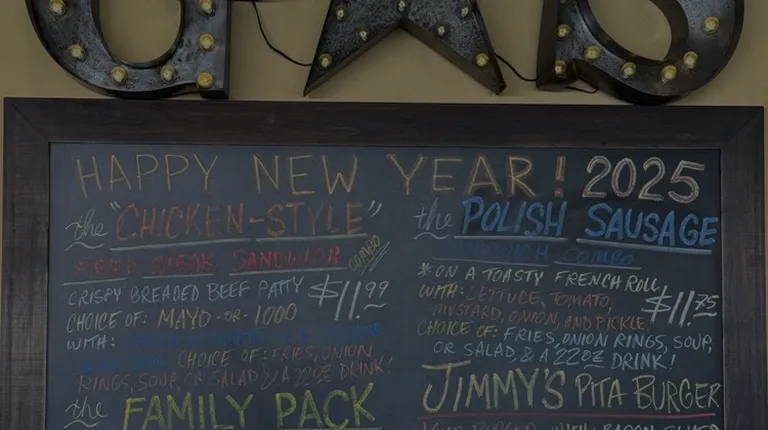 HAPPY NEW YEAR! 2025
the "CHICKEN-STYLE"
FRIED STEAK SANDWICH COMBO
CRISPY BREADED BEEF PATTY $11.99
CHOICE OF: MAYO -OR- 1000
WITH:
CHOICE OF: FRIES, ONION
RINGS, SOUP, OR SALAD & A 22oz DRINK!
the FAMILY PACK
the POLISH SAUSAGE
COMBO
*ON A TOASTY FRENCH ROLL
WITH: LETTUCE, TOMATO, $11.75
MUSTARD, ONION, AND PICKLE!
CHOICE OF: FRIES, ONION RINGS, SOUP,
OR SALAD & A 22oz DRINK!
JIMMY'S PITA BURGER